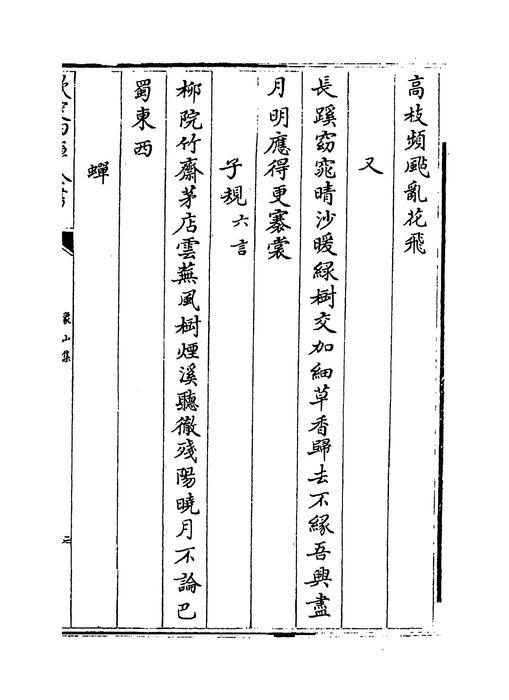 高枝頻颭亂花飛
又
長蹊窈窕晴沙暖緑樹交加細草香歸去不縁吾興盡
月明應得更褰裳
子規六言
柳院竹齋茅店雲蕪風樹煙溪聽徹殘陽曉月不論巴
蜀東西
蟬
欽定四庫全書
象山集
二